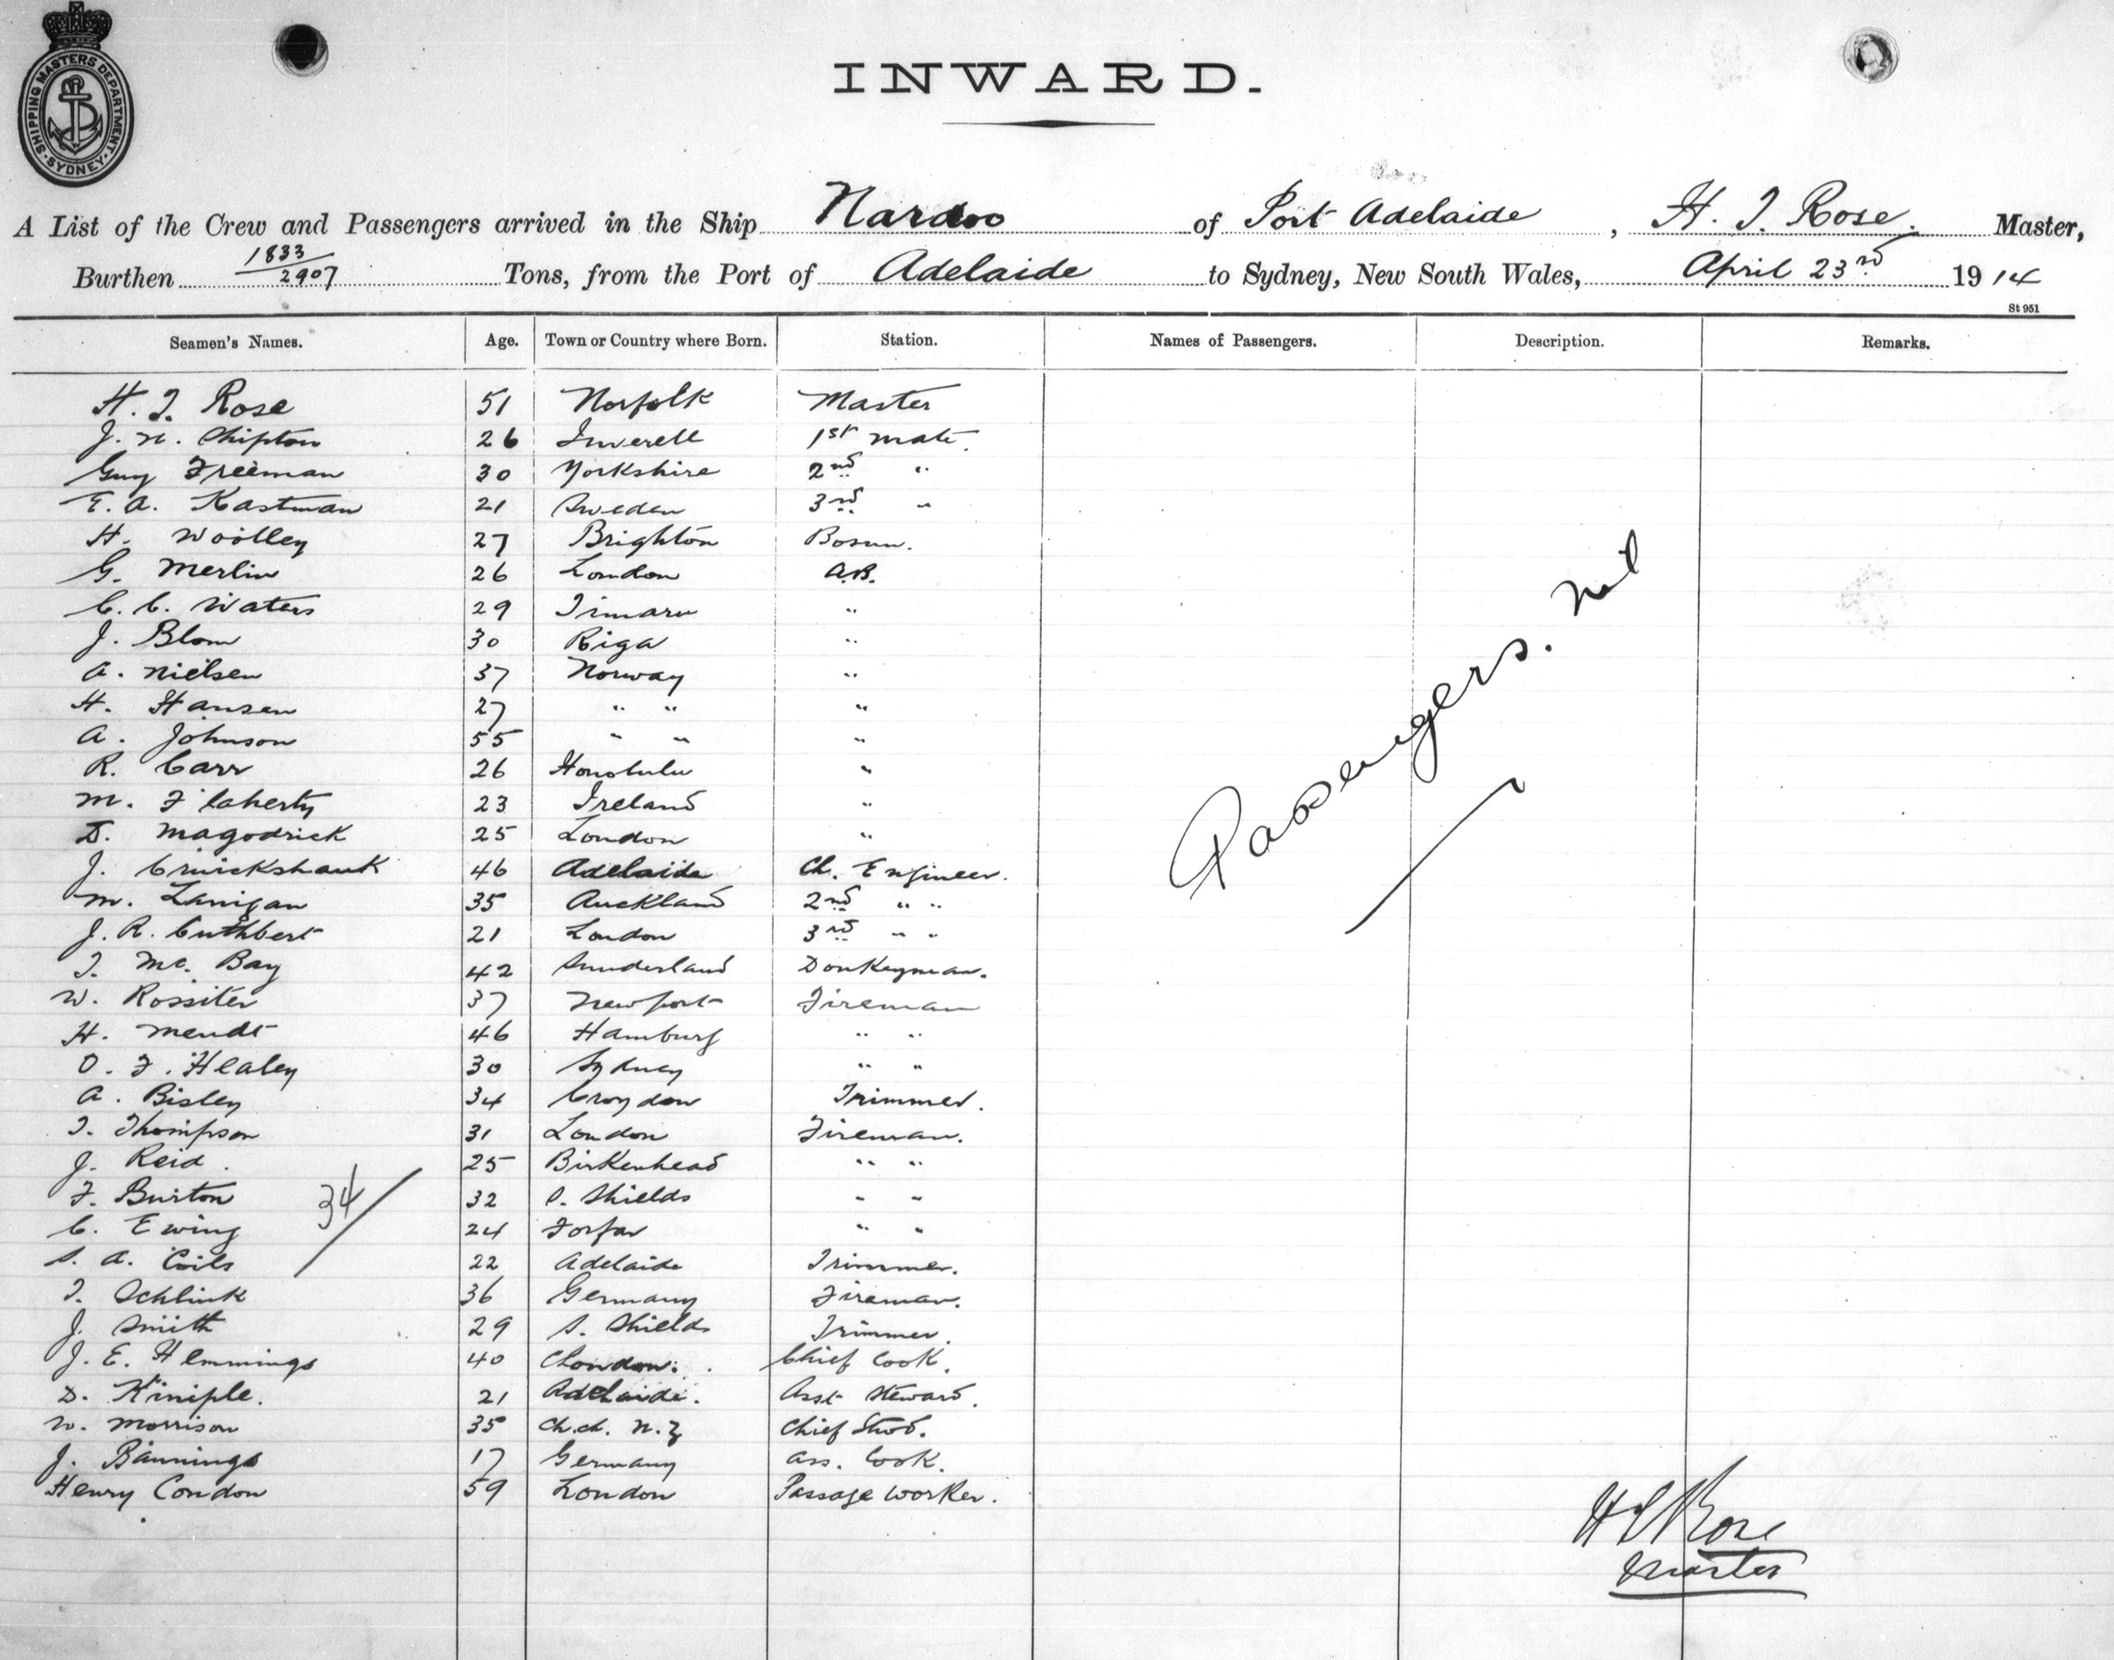 SHIPPING MASTERS DEPARTMENT
SYDNEY
INWARD.
A List of the Crew and Passengers arrived in the Ship Nardoo of Port Adelaide, H. J. Rose. Master,
Burthen 1833/2907 Tons, from the Port of Adelaide to Sydney, New South Wales, April 23rd 1914
St 951
Seamen's Names. Age. Town or Country where Born. Station. Names of Passengers. Description. Remarks.
H. J. Rose 51 Norfolk Master
J. N. Shipton 26 Inverell 1st Mate.
Guy Freeman 30 Yorkshire 2nd "
E. A. Kastman 21 Sweden 3rd "
H. Woolley 27 Brighton Bosun.
G. Merlin 26 London A.B.
C. C. Waters 29 Timaru "
J. Blom 30 Riga "
A. Nielsen 37 Norway "
H. Hansen 27 " " "
A. Johnson 55 " " "
R. Carr 26 Honolulu "
M. F'laherty 23 Ireland "
D. Magodrick 25 London "
J. Cruickshank 46 Adelaide Ch. Engineer.
M. Lanigan 35 Auckland 2nd " "
J. R. Cuthbert 21 London 3rd " "
T. Mc. Bay 42 Sunderland Donkeyman.
W. Rossiter 37 Newport Fireman
H. Mendt 46 Hamburg " "
O. F. Healey 30 Sydney " "
A. Bisley 34 Croydon Trimmer.
T. Thompson 31 London Fireman.
J. Reid. 25 Birkenhead " "
F. Burton 32 S. Shields " "
34/
C. Ewing 24 Forfar " "
S. A. Coils 22 Adelaide Trimmer.
T. Schlink 36 Germany Fireman.
J. Smith 29 S. Shields Trimmer.
J. E. Hemmings 40 London. Chief Cook.
D. Kiniple. 21 Adelaide. Asst Steward.
W. Morrison 35 Ch.ch. N.Z Chief Stwd.
J. Bannings 17 Germany Ass. Cook.
Henry Condon 59 London Passage worker.
Passengers. Nil
H J Rose
Master